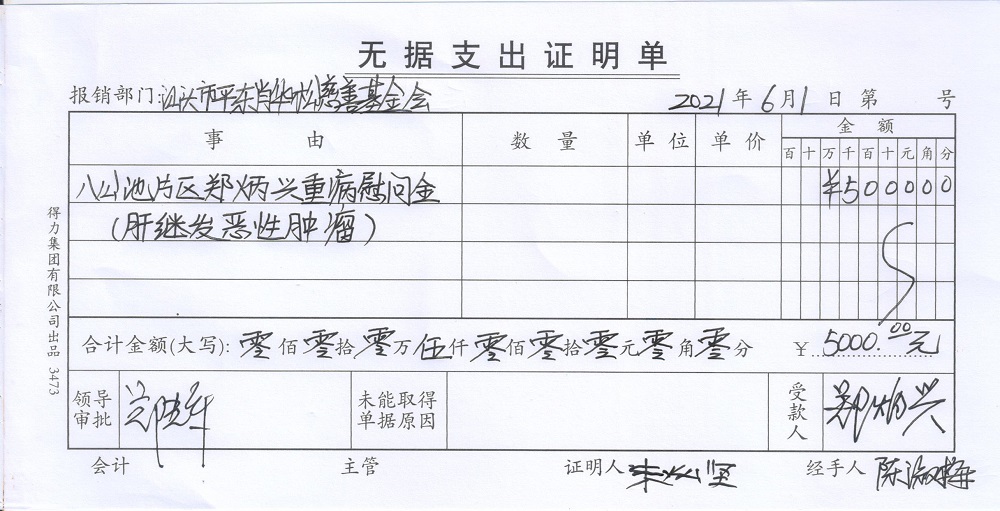 无据支出证明单
报销部门:汕头市平东肖华松慈善基金会 2021年6月1日第 号
事由 数量 单位 单价 金额
百十万千百十元角分
八公池片区郑炳兴重病慰问金 ¥500000
(肝继发恶性肿瘤)
合计金额(大写):零佰零拾零万伍仟零佰零拾零元零角零分 ¥5000.00元
领导审批 未能取得单据原因 受款人 郑炳兴
会计 主管 证明人 经手人 陈淑梅
得力集团有限公司出品 3473